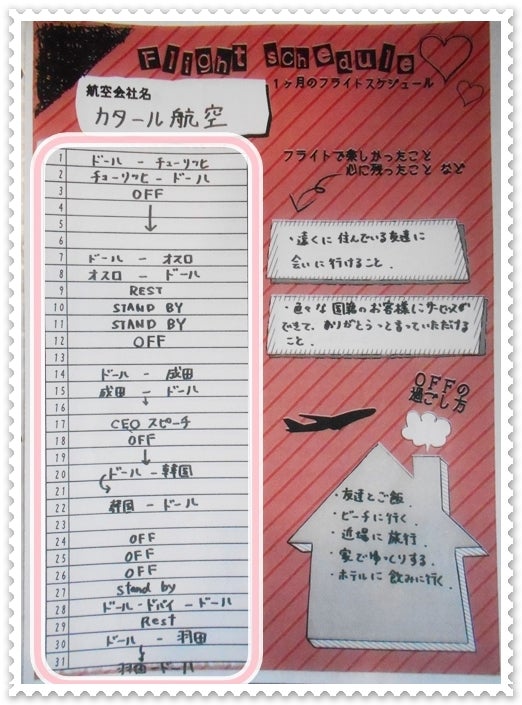 Flight schedule
1ヶ月のフライトスケジュール
航空会社名
カタール航空
1 ドール - チューリッヒ
2 チューリッヒ - ドール
3 OFF
4
5
6
7 ドール - オスロ
8 オスロ - ドール
9 REST
10 STAND BY
11 STAND BY
12 OFF
13
14 ドール - 成田
15 成田 - ドール
16
17 CEO スピーチ
18 OFF
19
20 ドール - 韓国
21
22 韓国 - ドール
23
24 OFF
25 OFF
26 OFF
27 Stand by
28 ドール - ドバイ - ドール
29 Rest
30 ドール - 羽田
31 羽田 - ドール
フライトで楽しかったこと
心に残ったこと など
・遠くに住んでいる友達に
会いに行けること.
・色々な国籍のお客様にサービスが
できて、ありがとうっと言っていただける
こと.
OFFの
過ごし方
・友達とご飯.
・ビーチに行く.
・近場に旅行.
・家でゆっくりする.
・ホテルに飲みに行く.